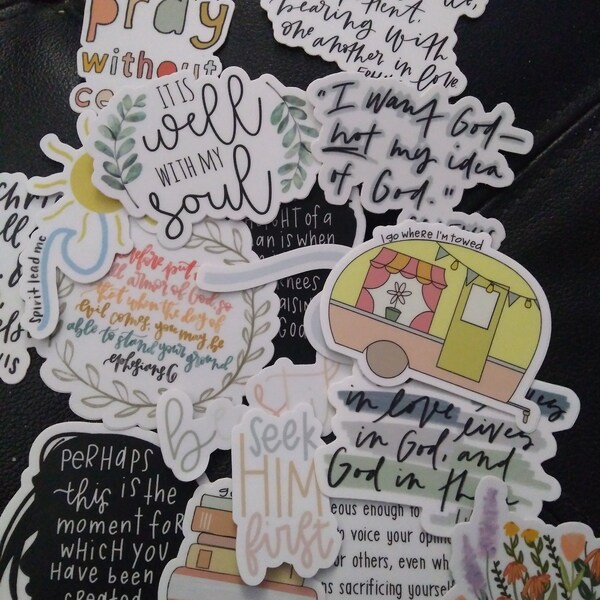 pray
without
ce
tient,
bearing with
one another in love
IT IS
well
WITH MY
soul
"I want God—
not my idea
of God."
spirit lead me
HT of a
an is when
nees
aisin
God
armor of God, so
that when the day of
evil comes, you may be
able to stand your ground
ephesians 6
I go where I'm towed
seek
HIM
first
in love lives
in God, and
God in th
PERHAPS
this is the
moment for
which you
have been
created
eous enough to
n voice your opini
or others, even wh
ns sacrificing yourself